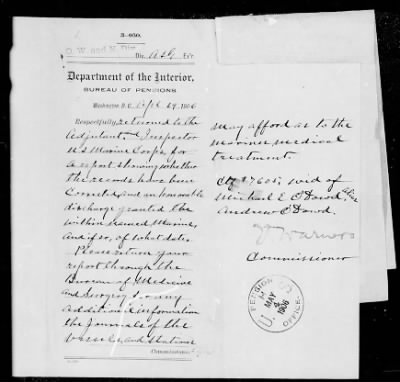 3-850.
O. W. and N. Div.
Div. Ex'r
Department of the Interior,
BUREAU OF PENSIONS,
Washington, D.C., Sept 29, 1906
Respectfully returned to the
Adjutant & Inspector
U S Marine Corps for
a report showing whether
the records have been
Corrected and an honorable
discharge granted the
within named Marine,
and if so, of what date.
Please return your
report through the
Bureau of Medicine
and Surgery for any
Additional information
the Journals of the
Vessels and Stations
Commissioner
may afford as to the
marines medical
treatment.
7605, wid of
Michael E O'Dowd alias
Andrew O'Dowd.
V Warner
Commissioner
U.S. PENSION OFFICE.
MAY
1906